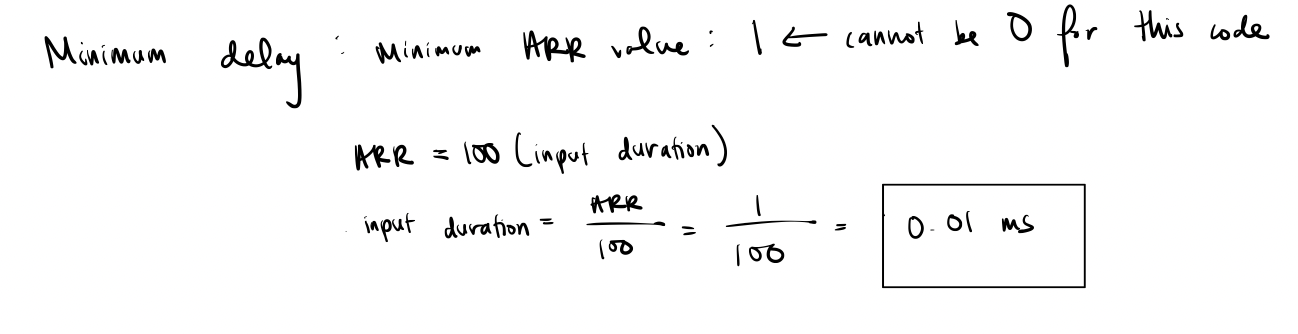 Minimum delay : Minimum ARR value : 1 ← cannot be 0 for this code
ARR = 100 (input duration)
input duration = ARR/100 = 1/100 = 0.01 ms